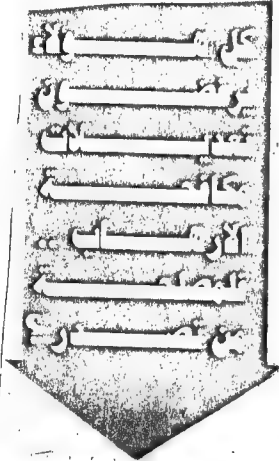 كل هـــؤلاء
يرفضـــون
تعديـــلات
مكافحـــة
الإرهـــاب ..
لمصلحـــة
من تصدر؟